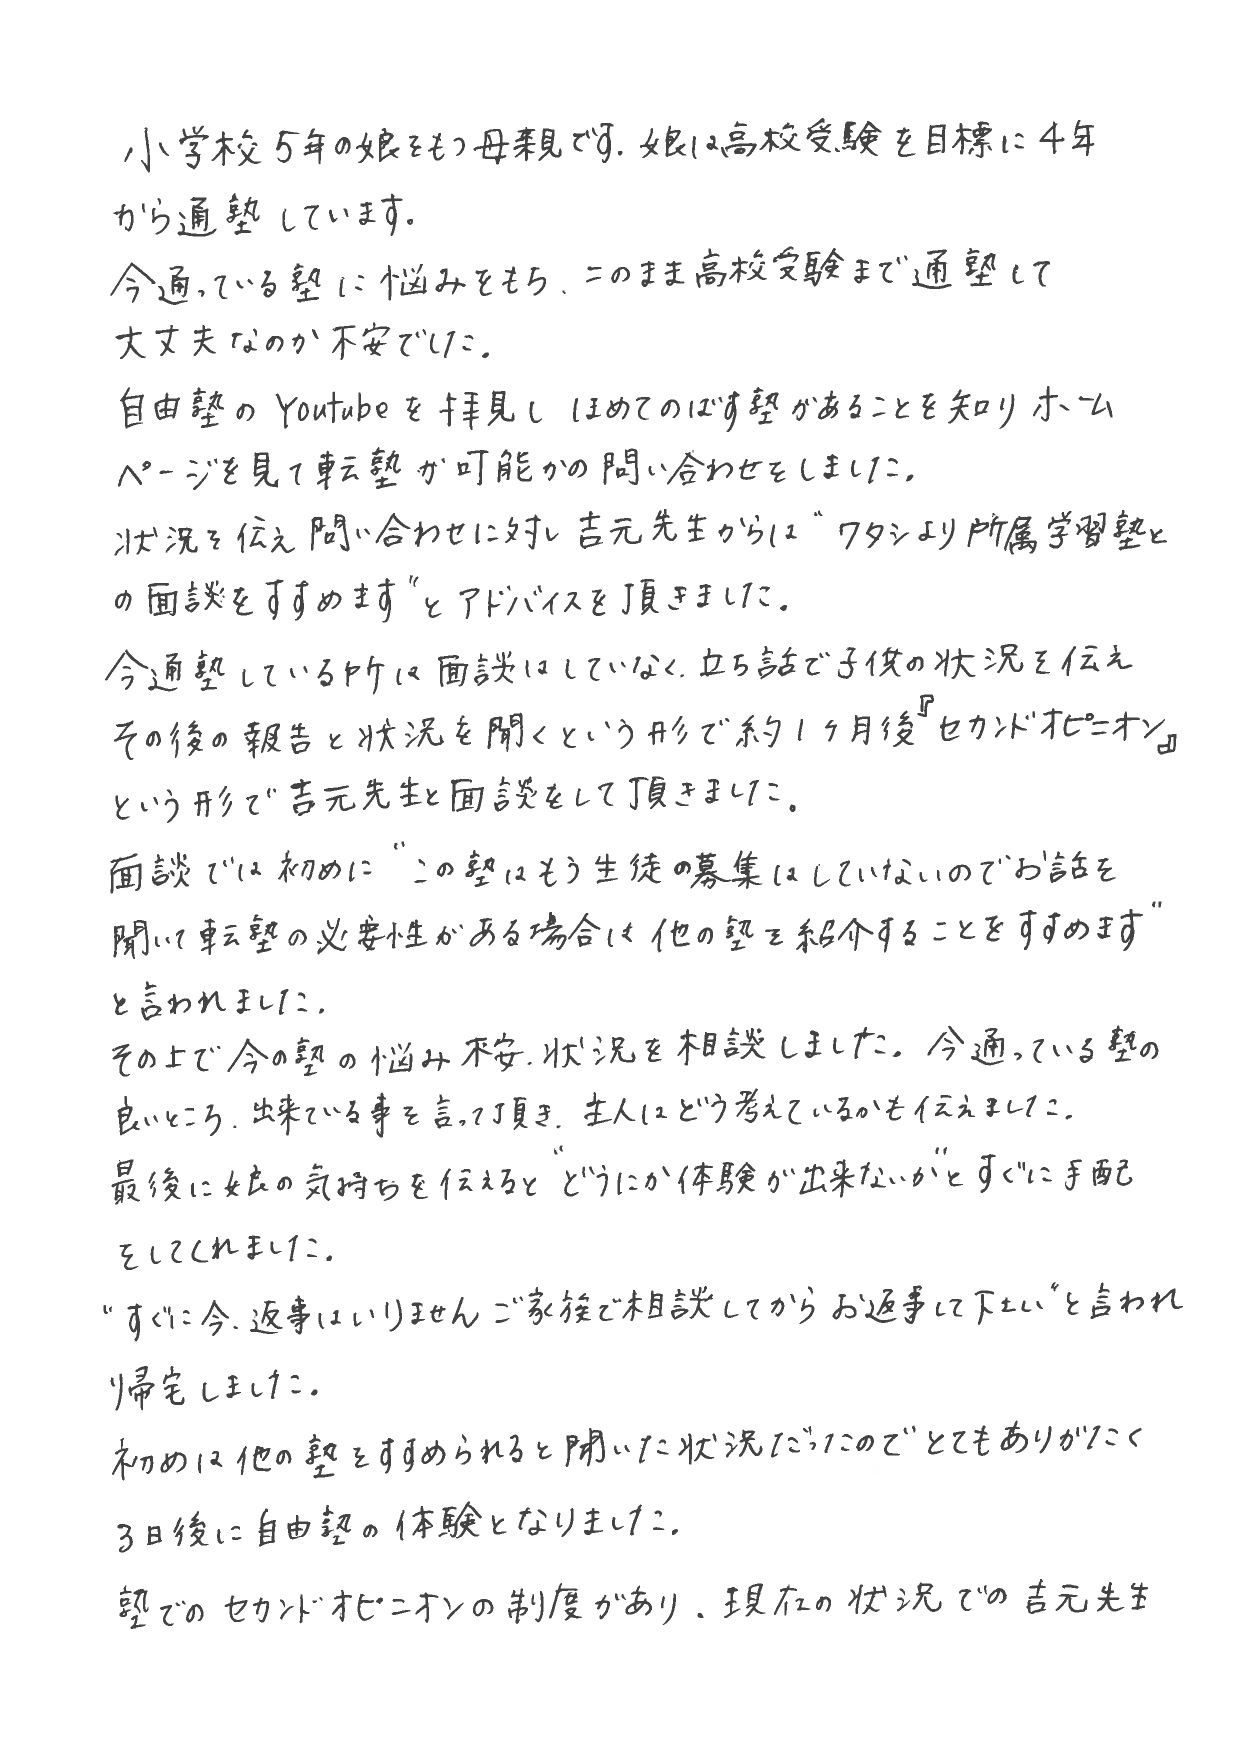 小学校5年の娘をもつ母親です.娘は高校受験を目標に4年
から通塾しています.
今通っている塾に悩みをもち、このまま高校受験まで通塾して
大丈夫なのか不安でした.
自由塾のYoutubeを拝見し ほめてのばす塾があることを知り ホーム
ページを見て転塾が可能かの問い合わせをしました.
状況を伝え問い合わせに対し吉元先生からは“ワタシより所属学習塾と
の面談をすすめます”とアドバイスを頂きました.
今通塾している所は面談はしていなく、立ち話で子供の状況を伝え
その後の報告と状況を聞くという形で約1ヶ月後『セカンドオピニオン』
という形で吉元先生と面談をして頂きました.
面談では初めに“この塾はもう生徒の募集はしていないのでお話を
聞いて転塾の必要性がある場合は他の塾を紹介することをすすめます”
と言われました.
その上で今の塾の悩み不安、状況を相談しました.今通っている塾の
良いところ、出来ている事を言って頂き、主人はどう考えているかも伝えました.
最後に娘の気持ちを伝えると“どうにか体験が出来ないか”とすぐに手配
をしてくれました.
“すぐに今、返事はいりません ご家族で相談してからお返事して下さい”と言われ
帰宅しました.
初めは他の塾をすすめられると聞いた状況だったのでとてもありがたく
3日後に自由塾の体験となりました.
塾でのセカンドオピニオンの制度があり、現在の状況での吉元先生